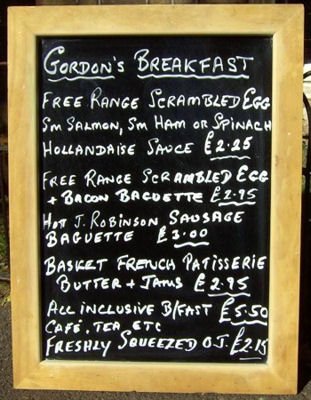 GORDON'S BREAKFAST
FREE RANGE SCRAMBLED EGG
SM SALMON, SM HAM OR SPINACH
HOLLANDAISE SAUCE £2.25
FREE RANGE SCRAMBLED EGG
+ BACON BAGUETTE £2.95
HOT J. ROBINSON SAUSAGE
BAGUETTE £3.00
BASKET FRENCH PATISSERIE
BUTTER + JAMS £2.95
ALL INCLUSIVE B/FAST £5.50
CAFÉ, TEA, ETC
FRESHLY SQUEEZED O.J. £2.15